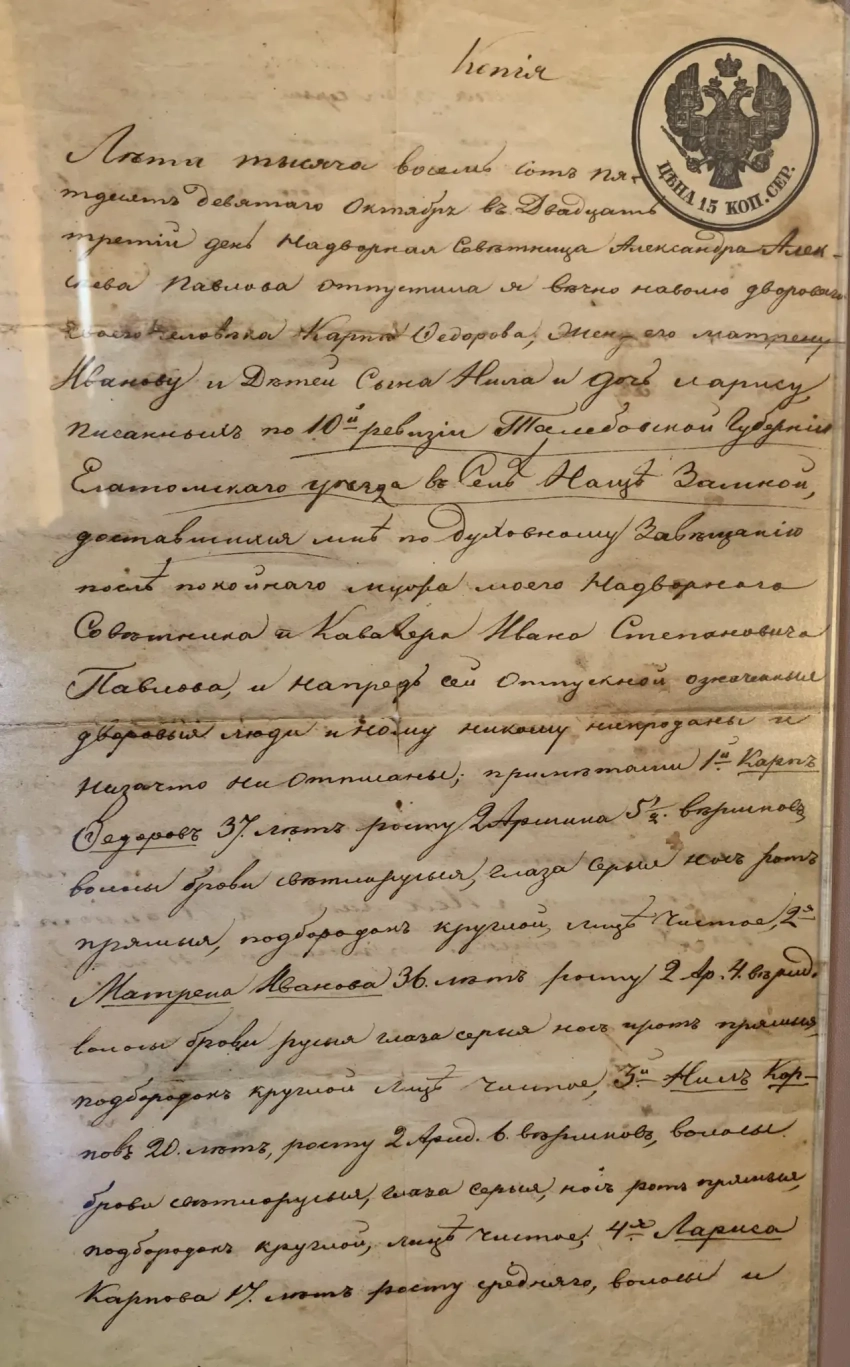 Копія
ЦѢНА 15 КОП. СЕР.
Лѣта тысяча восемь сотъ пя-
тдесятъ девятаго Октября въ Двадцать
третій день Надворная Совѣтница Александра Алек-
сѣева Павлова отпустила я вѣчно наволю двороваго
своего человѣка Карпа Ѳедорова, Жену его матрену
Иванову и Дѣтей Сына Нила и дочь ларису,
писанныхъ по 10й ревизіи Тамбовской Губерніи
Елатомскаго уѣзда въ Селѣ
доставшихся мнѣ по духовному Завѣщанію
послѣ покойнаго мужа моего Надворнаго
Совѣтника и Кавалера Ивана Степановича
Павлова, и напредь сей отпускной означенныя
дворовыя люди иному никому непроданы и
низачто ни отписаны; примѣтами 1й Карпъ
Ѳедоровъ 37. лѣтъ росту 2 Аршина 5½. вершковъ,
волосы брови свѣтлорусыя, глаза серыя носъ ротъ
прямыя, подбородокъ круглой, лицѣ чистое, 2я
Матрена Иванова 36. лѣтъ росту 2 Ар. 4. вершк.
волосы брови русыя глаза серыя носъ иротъ прямыя,
подбородокъ круглой лицѣ чистое, 3й Нилъ Кор-
повъ 20. лѣтъ, росту 2 Арш. 6. вершковъ, волосы
брови свѣтлорусыя, глаза серыя, носъ ротъ прямыя,
подбородокъ круглой, лицѣ чистое, 4я Лариса
Карпова 17. лѣтъ росту средняго, волосы и